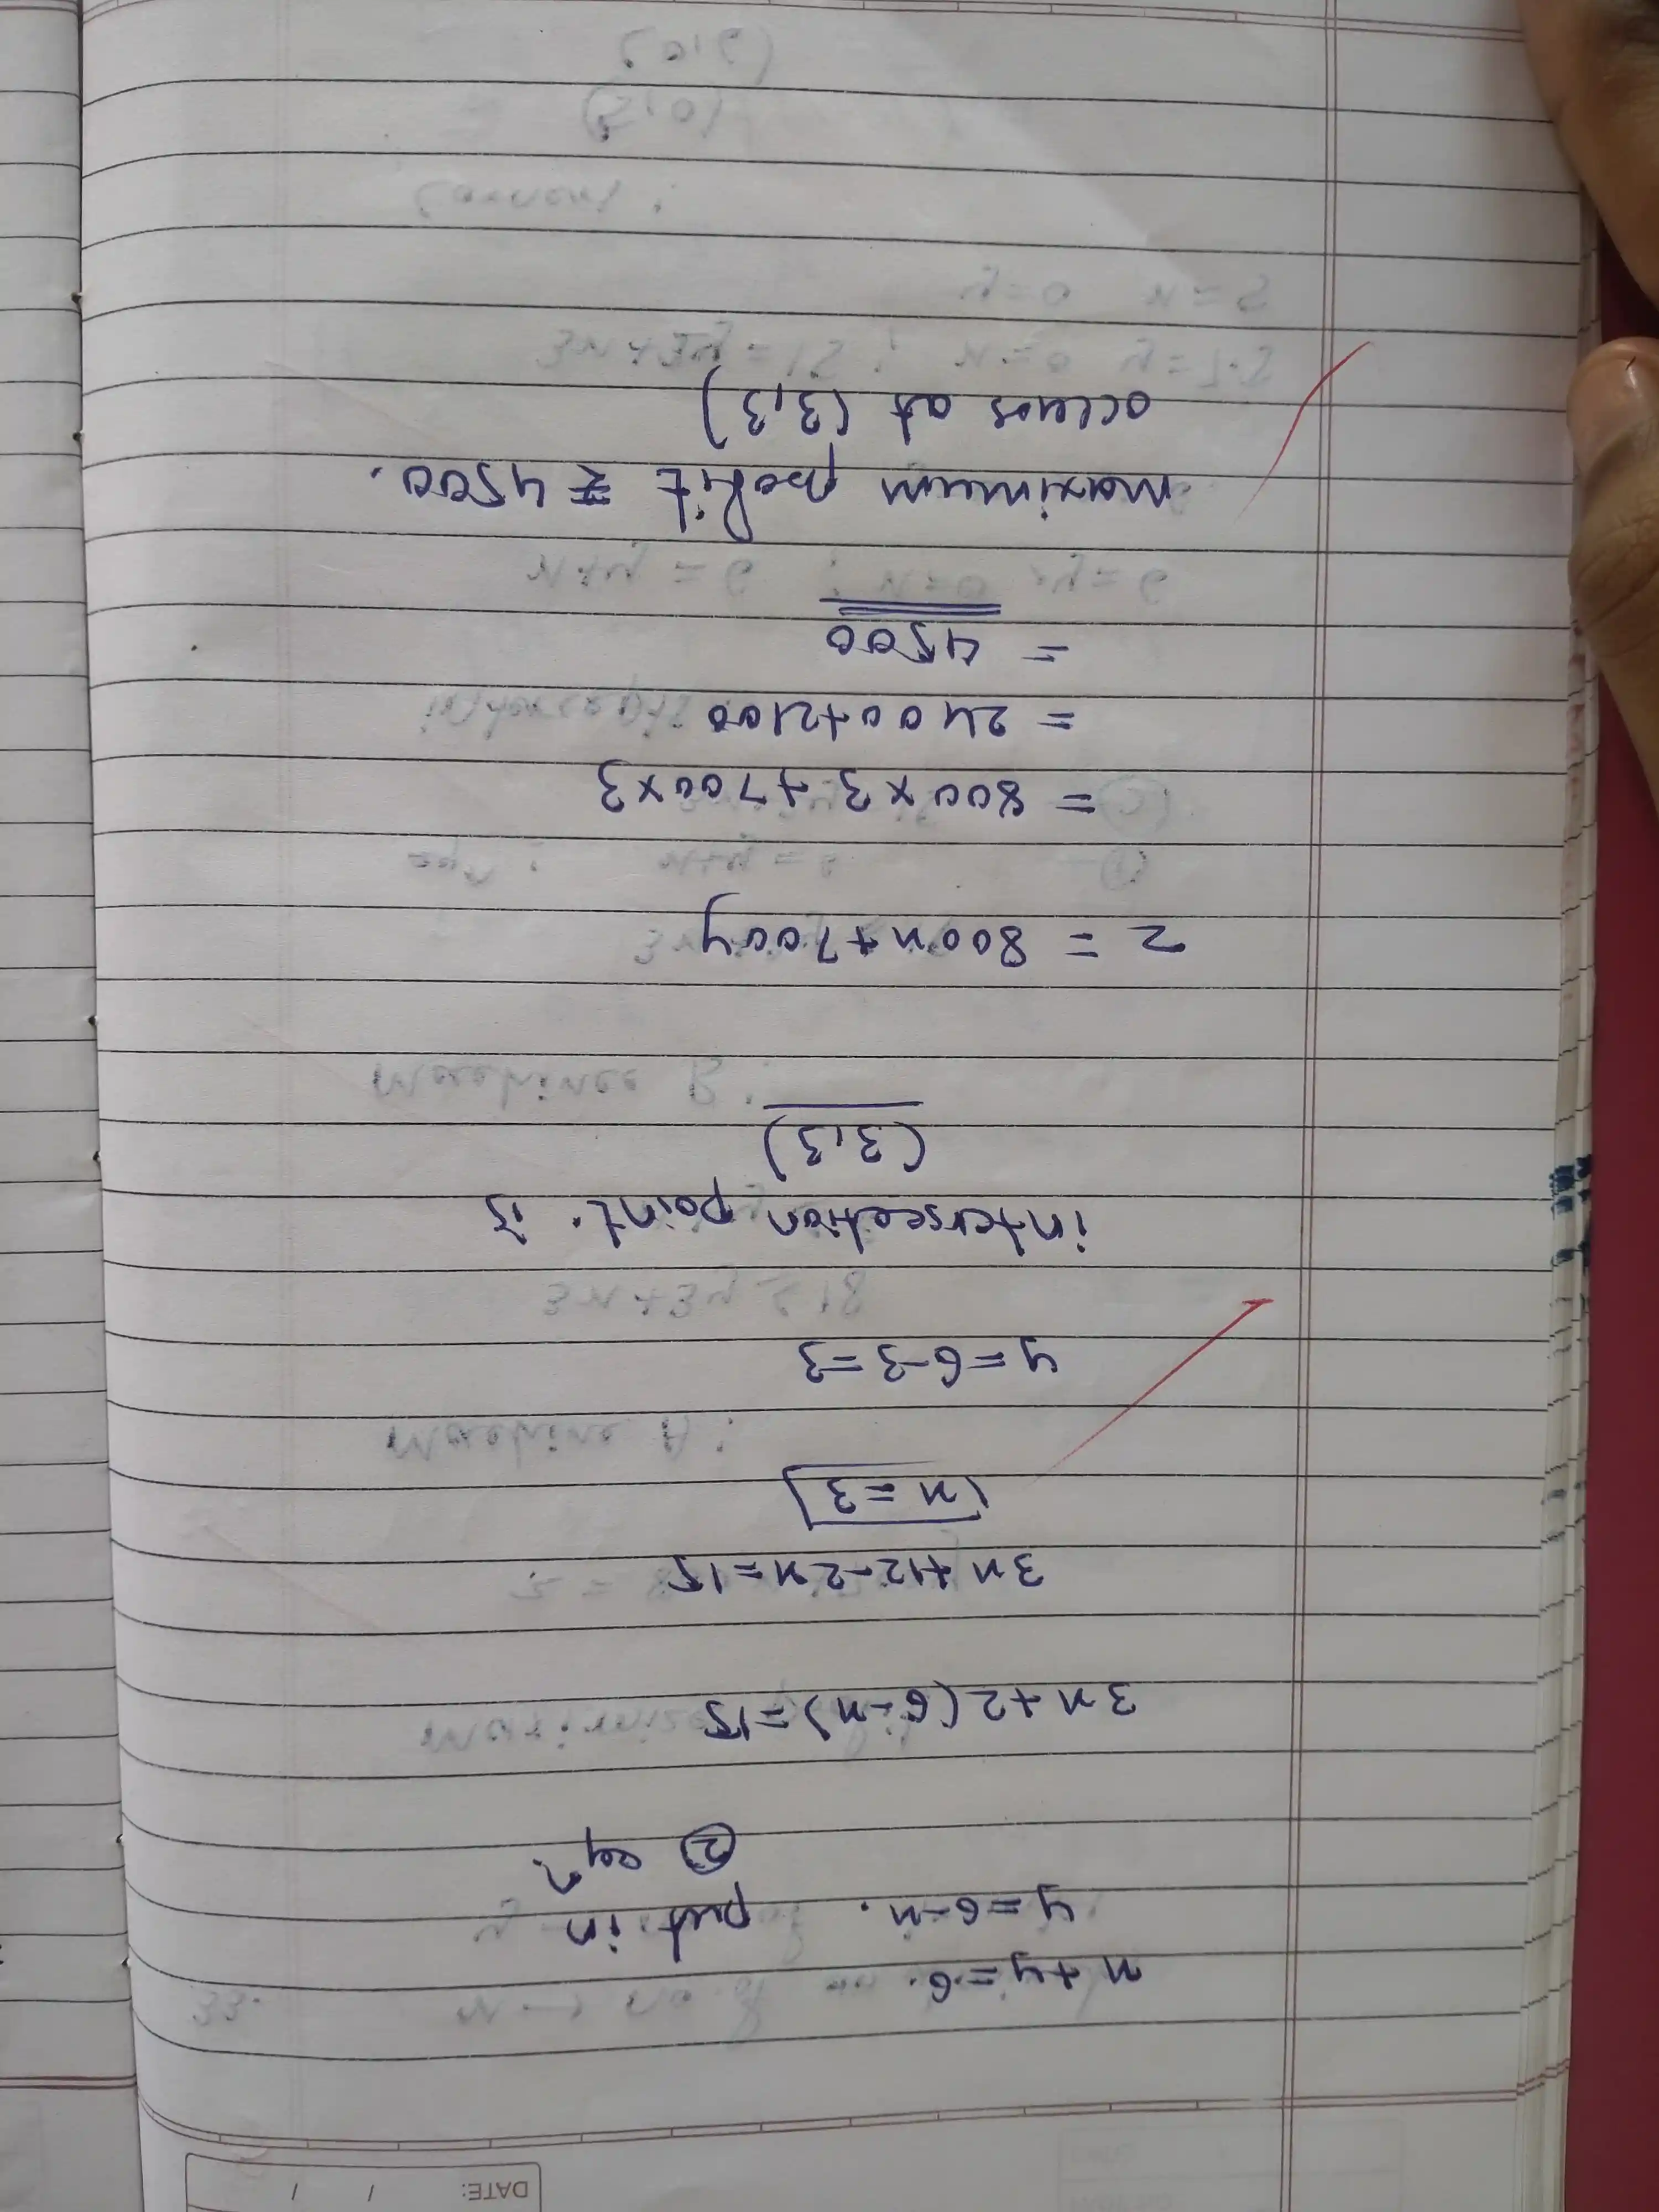 DATE: / /
x+y=6.
y=6-x. put in
② eqn.
3x+2(6-x)=15
3x+12-2x=15
x=3
y=6-3=3
intersection point is
(3,3)
z = 800x+700y
= 800×3+700×3
= 2400+2100
= 4500
maximum profit ₹ 4500.
occurs at (3,3)